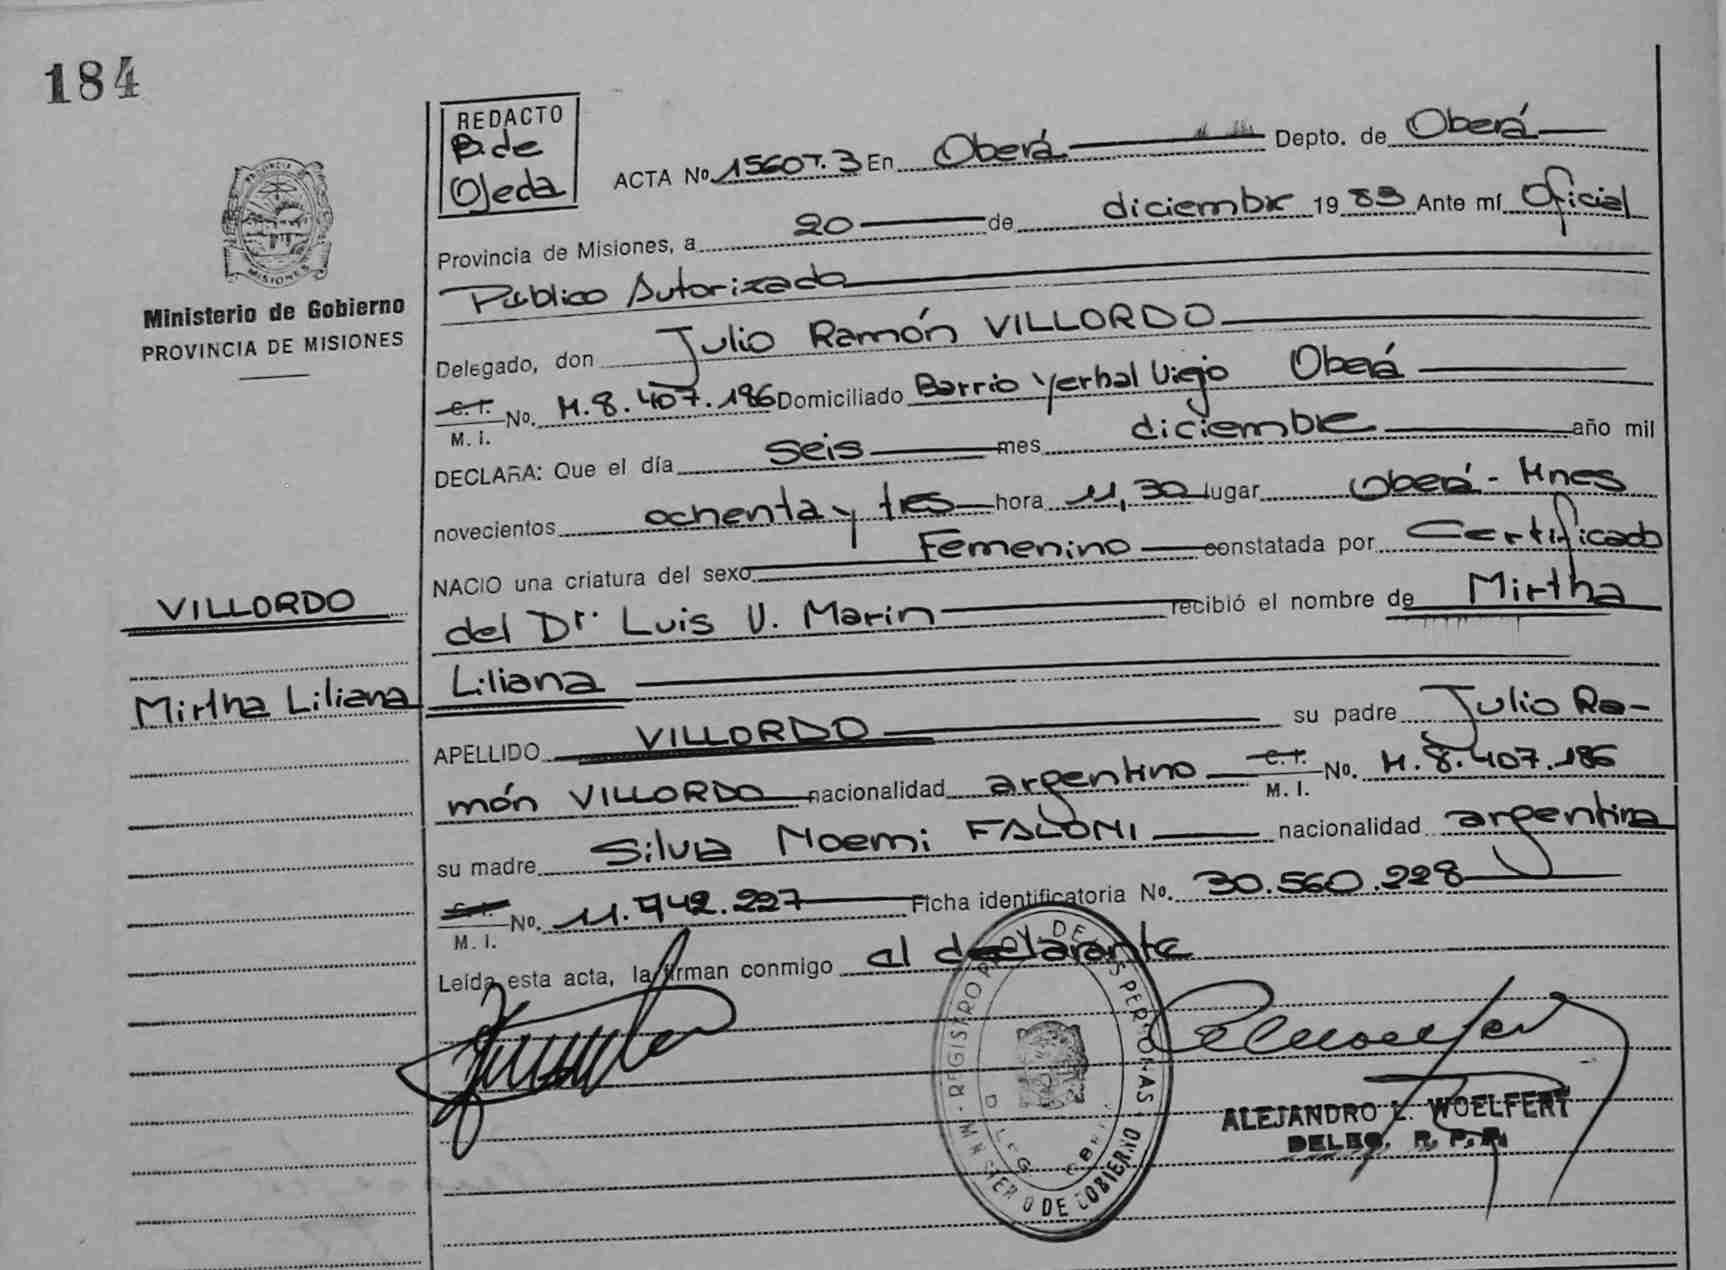 184
REDACTO
B. de
Ojeda
PROVINCIA DE
MISIONES
Ministerio de Gobierno
PROVINCIA DE MISIONES
ACTA No 1560 T. 3 En Oberá Depto. de Oberá
Provincia de Misiones, a 20 de diciembre 1983 Ante mí Oficial
Público Autorizado
Delegado, don Julio Ramón VILLORDO
C.I. M. I. No. M.8.407.186 Domiciliado Barrio Yerbal Viejo Oberá
DECLARA: Que el día seis mes diciembre año mil
novecientos ochenta y tres hora 11,30 lugar Oberá - Mnes
NACIO una criatura del sexo Femenino constatada por Certificado
del Dr. Luis V. Marin recibió el nombre de Mirtha
Liliana
APELLIDO VILLORDO su padre Julio Ra-
món VILLORDO nacionalidad argentino C.I. M. I. No. M.8.407.186
su madre Silvia Noemi FALONI nacionalidad argentina
C.I. M. I. No. 11.742.227 Ficha identificatoria No. 30.560.228
Leída esta acta, la firman conmigo el declarante
VILLORDO
Mirtha Liliana
REGISTRO PROV. DE LAS PERSONAS
MINISTERIO DE GOBIERNO
ALEJANDRO L. WOELFERT
DELEG. R. P. P.